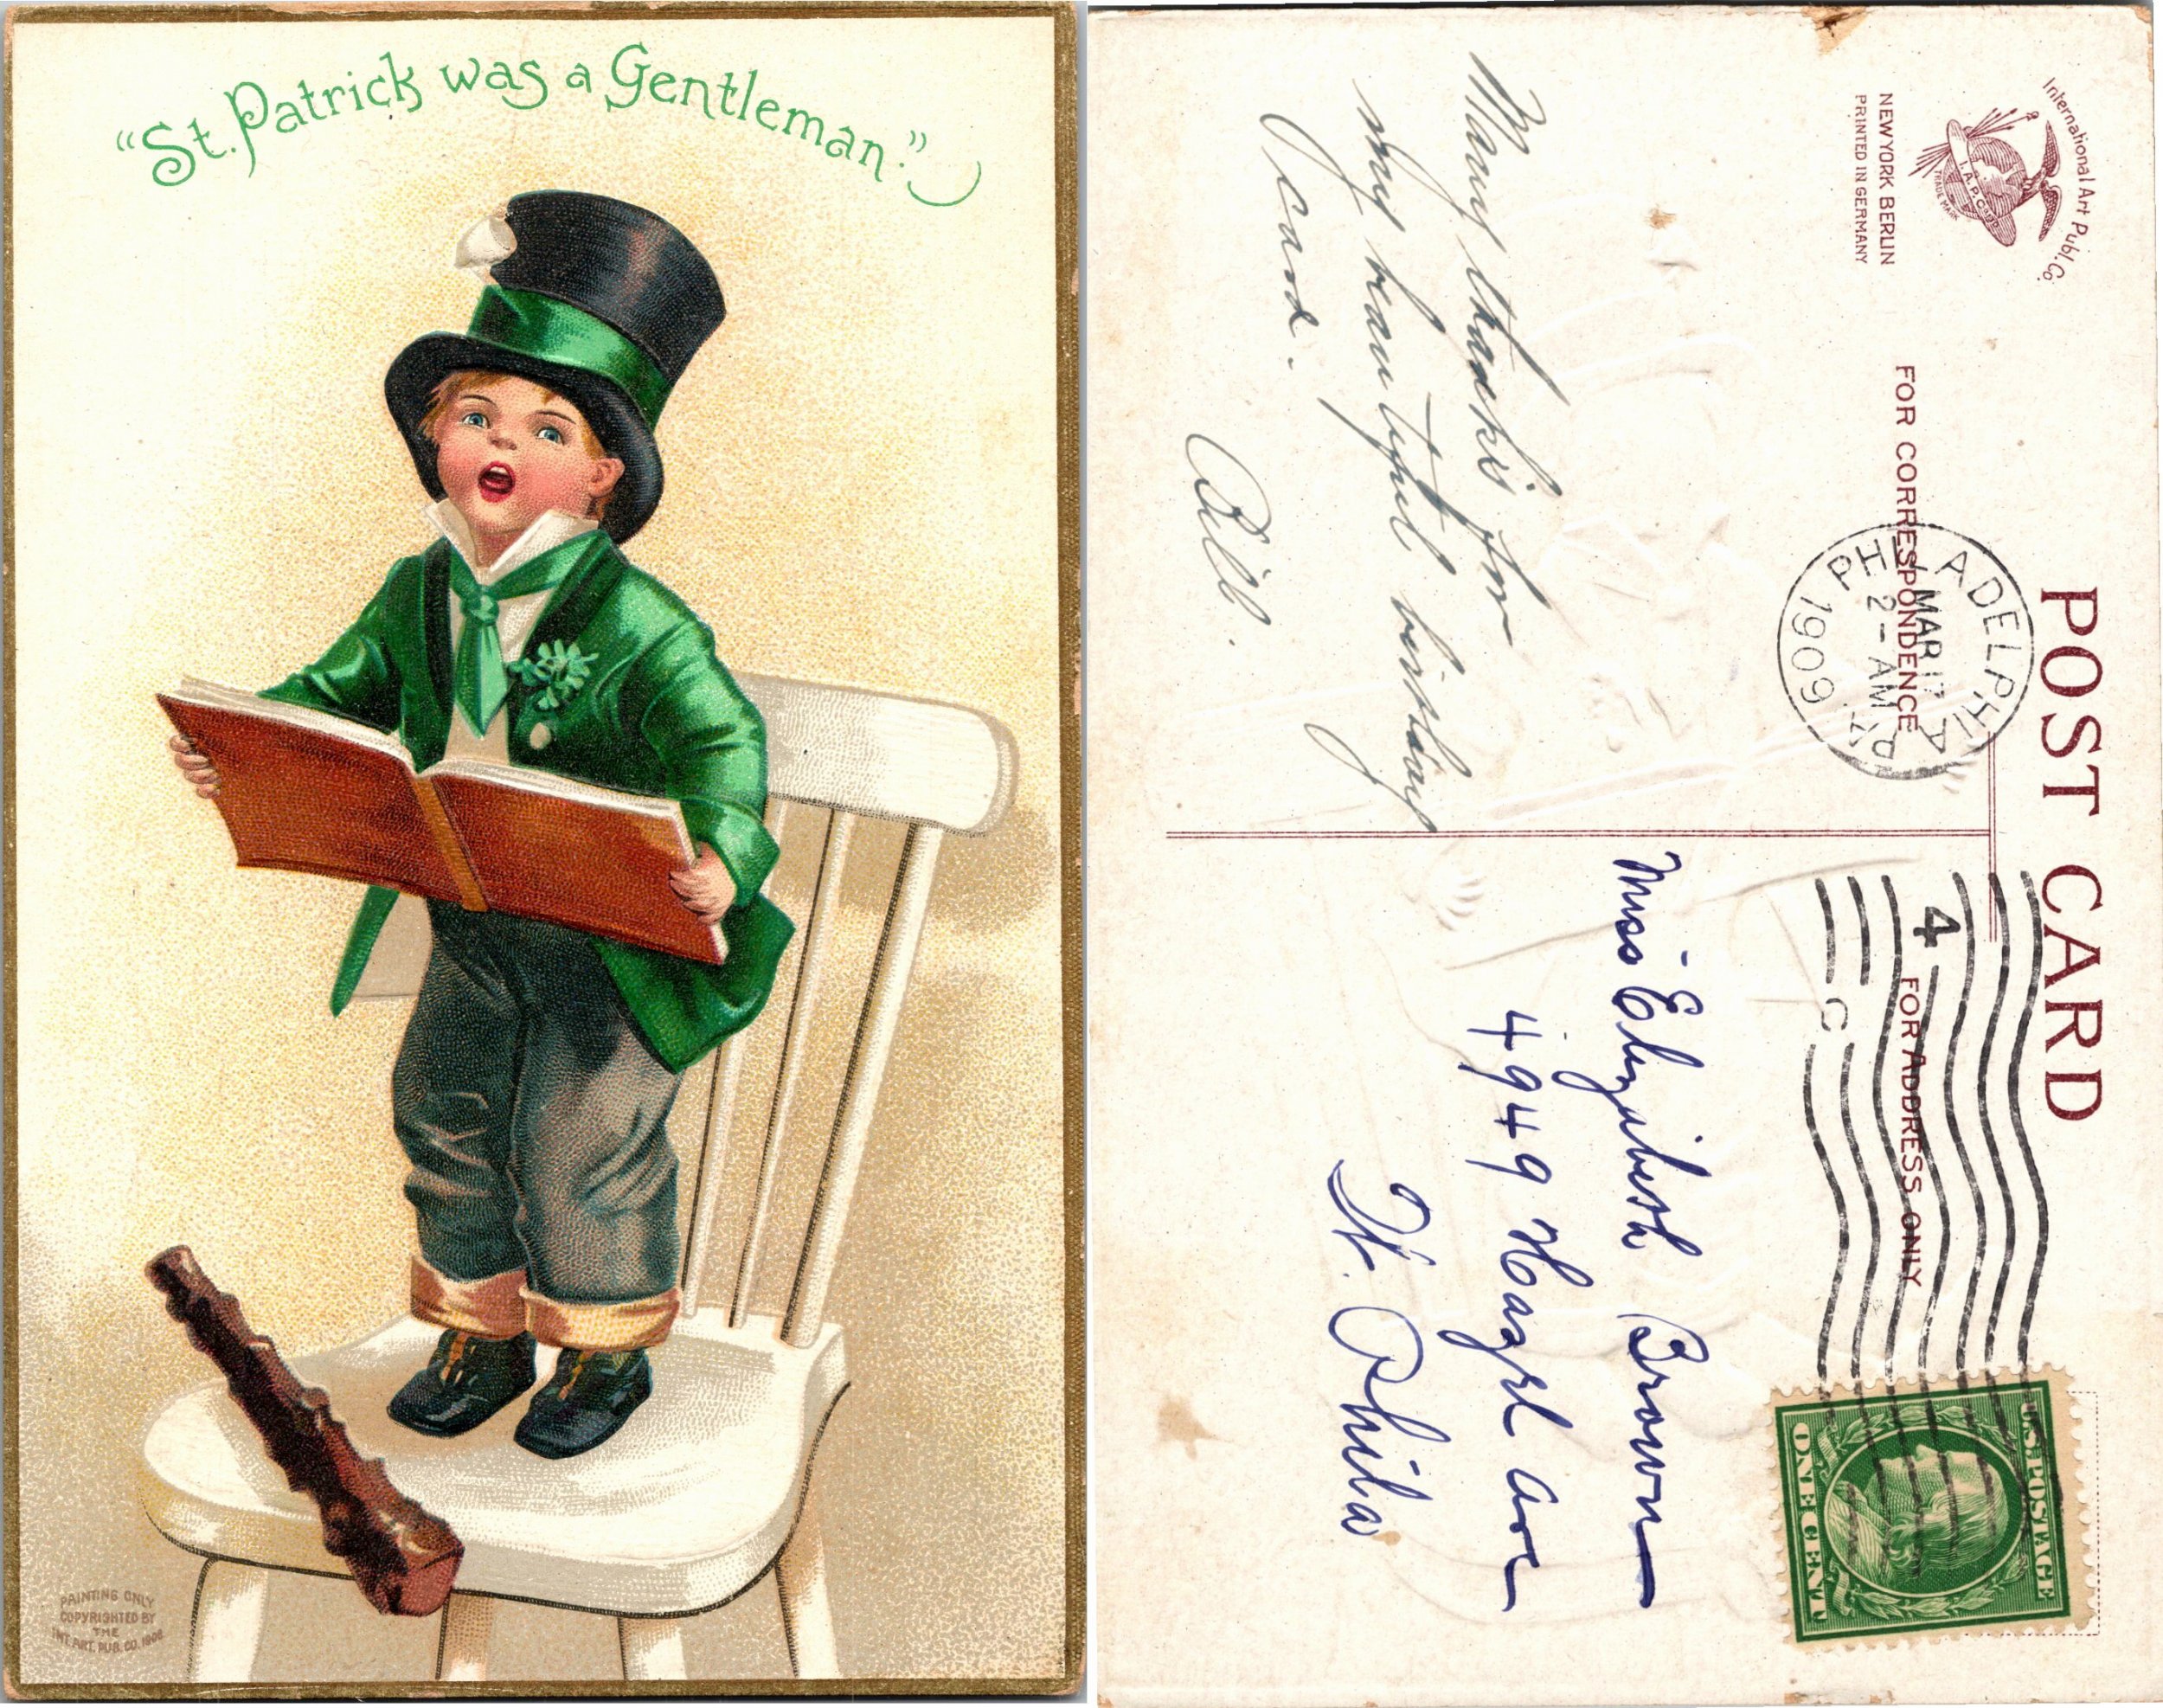 "St. Patrick was a Gentleman."
PAINTING ONLY
COPYRIGHTED BY
THE
INT. ART. PUB. CO. 1908
POST CARD
International Art Publ. Co.
I.A.P.Co.
TRADE MARK
NEW YORK BERLIN
PRINTED IN GERMANY
FOR CORRESPONDENCE
FOR ADDRESS ONLY
PHILADELPHIA, PA.
MAR 17
2 - AM
1909
4
C
U.S. POSTAGE
ONE CENT
Many thanks for
my beautiful birthday
card.
Bill.
Miss Elizabeth Brown
4949 Hazel Ave
W. Phila